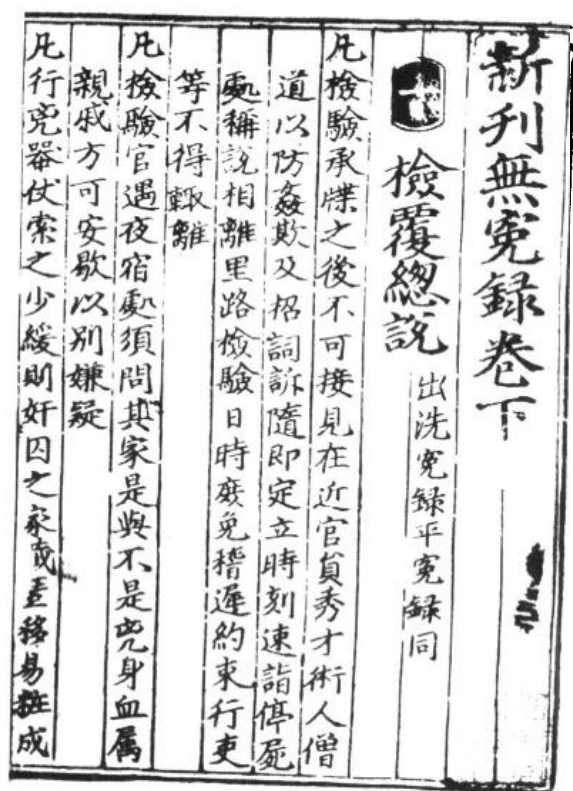 新刋無寃録卷下
十 檢覆緫說 出洗寃録平寃録同
凡檢驗承牒之後不可接見在近官貟秀才術人僧
道以防姦欺及招詞訴隨即定立時刻速詣停屍
處稱說相離里路檢驗日時庻免稽遲約束行吏
等不得輒離
凡檢驗官遇夜宿處須問其家是與不是兇身血属
親戚方可安歇以别嫌疑
凡行兇器仗索之少緩則奸囚之家或蔵移易粧成